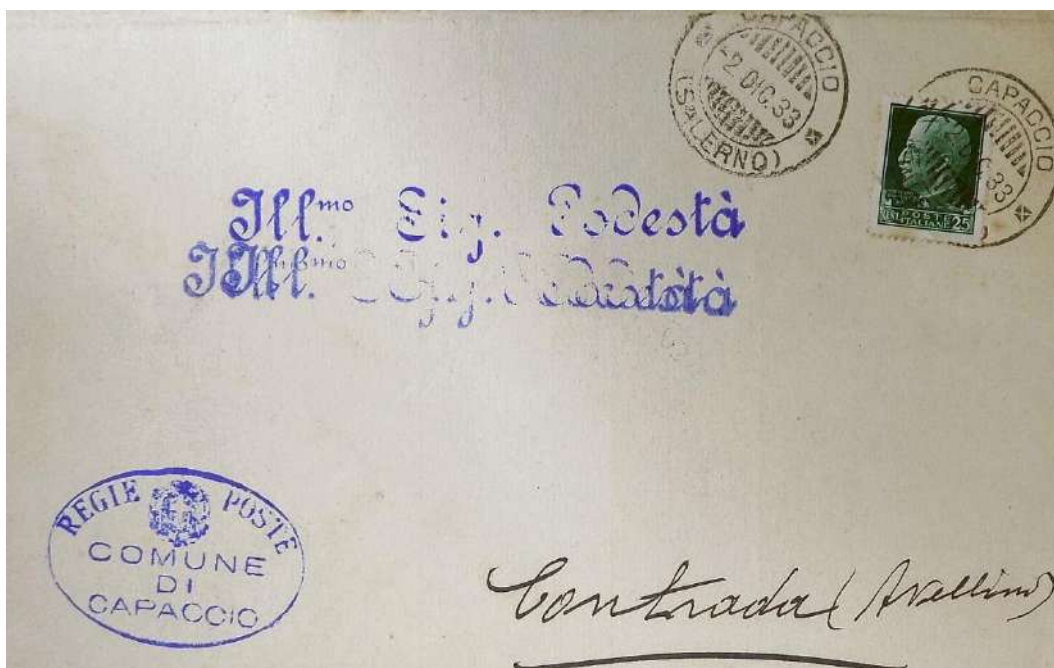 CAPACCIO
-2 DIC. 33
(SALERNO)
CAPACCIO
33
POSTE
ITALIANE
25
Ill.mo Sig. Podestà
Ill.mo
REGIE POSTE
COMUNE
DI
CAPACCIO
Contrada (Avellino)